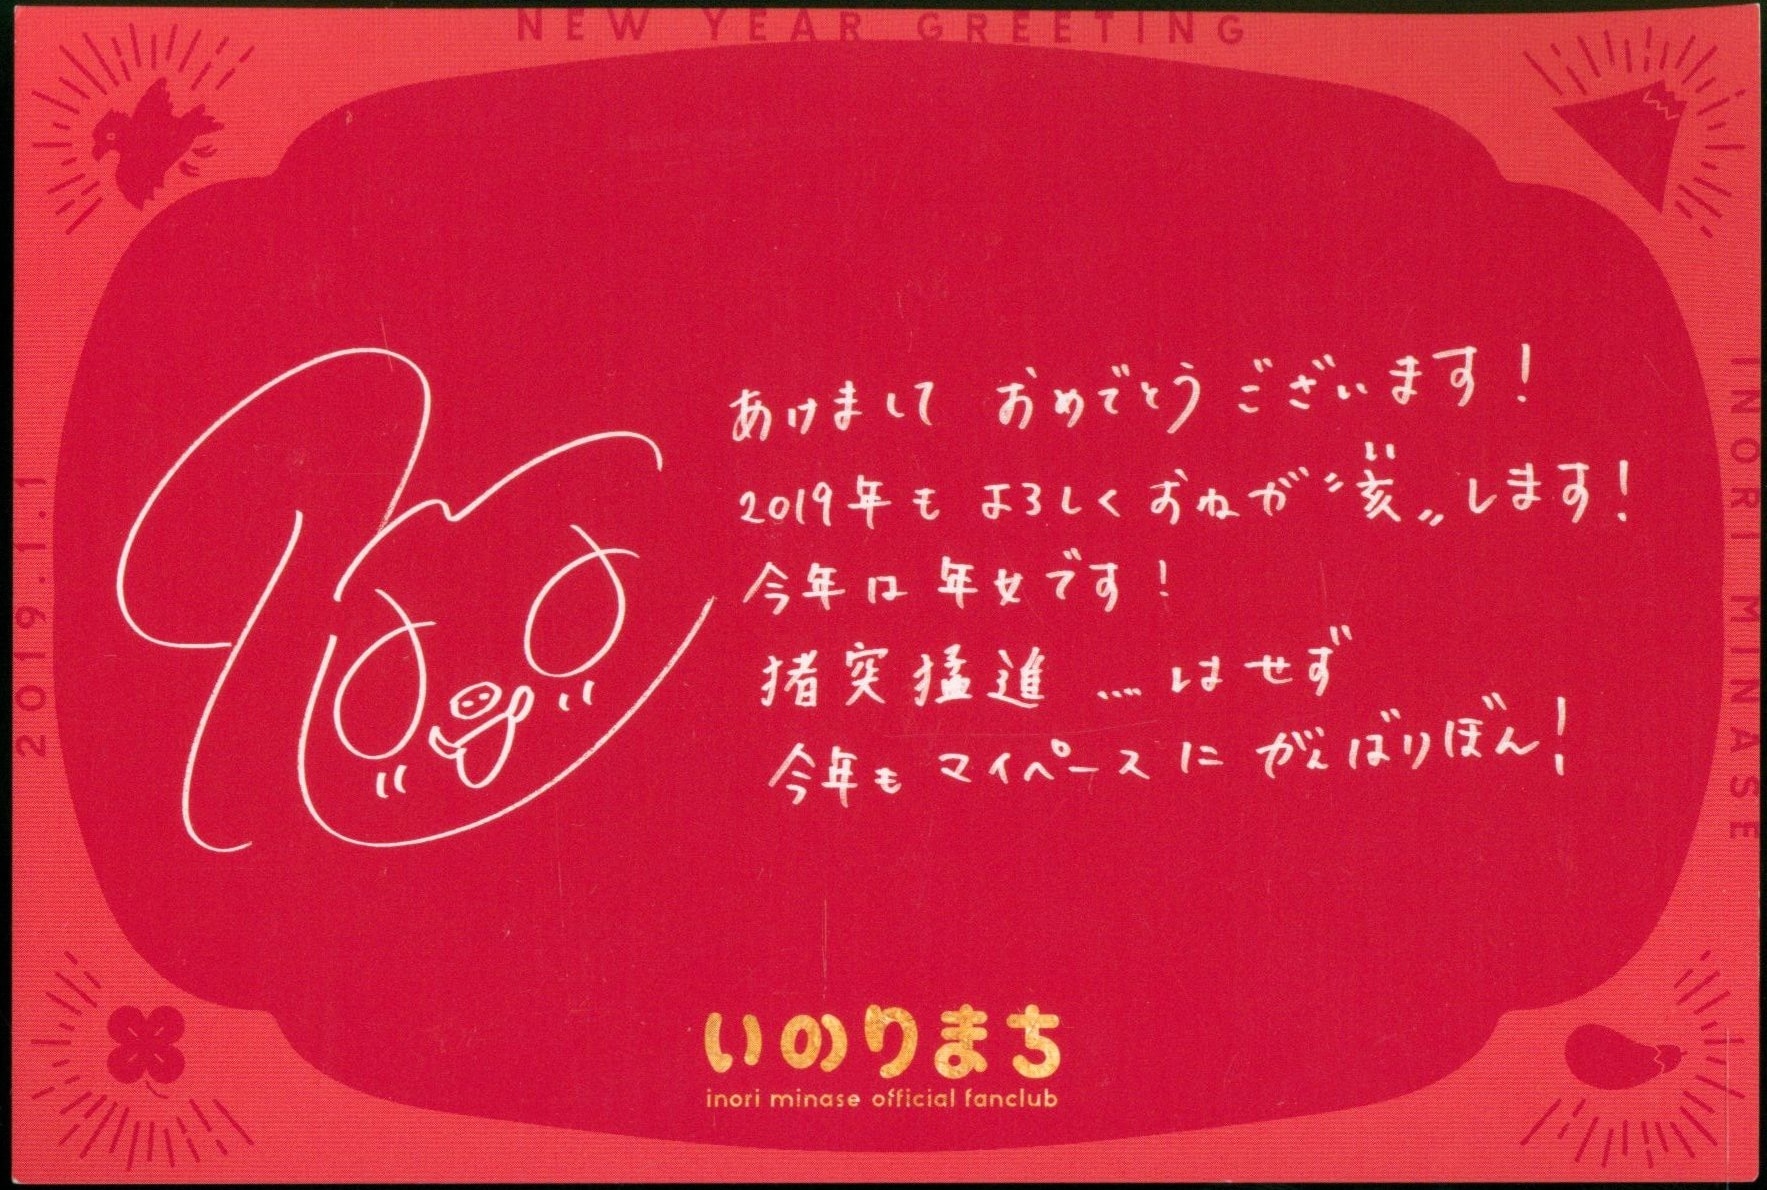 NEW YEAR GREETING
2019.1.1
INORI MINASE
あけまして おめでとう ございます!
い
2019年も よろしく おねが〝亥〟します!
今年は 年女です!
猪突猛進 ……はせず
今年も マイペースに がんばりぼん!
いのりまち
inori minase official fanclub